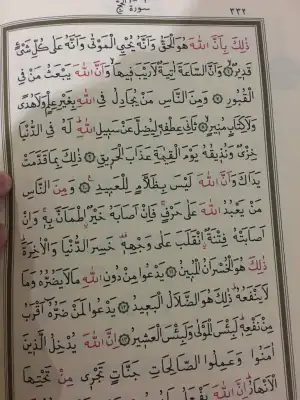 ٣٣٢
سورة الحج
ذٰلِكَ بِاَنَّ اللّٰهَ هُوَ الْحَقُّ وَاَنَّهُ يُحْيِ الْمَوْتٰى وَاَنَّهُ عَلٰى كُلِّ شَيْءٍ
قَدِيرٌ ۞ وَاَنَّ السَّاعَةَ اٰتِيَةٌ لَا رَيْبَ فِيهَا وَاَنَّ اللّٰهَ يَبْعَثُ مَنْ فِي
الْقُبُورِ ۞ وَمِنَ النَّاسِ مَنْ يُجَادِلُ فِي اللّٰهِ بِغَيْرِ عِلْمٍ وَلَا هُدًى
وَلَا كِتَابٍ مُنِيرٍ ۞ ثَانِيَ عِطْفِهِ لِيُضِلَّ عَنْ سَبِيلِ اللّٰهِ لَهُ فِي الدُّنْيَا
خِزْيٌ وَنُذِيقُهُ يَوْمَ الْقِيٰمَةِ عَذَابَ الْحَرِيقِ ۞ ذٰلِكَ بِمَا قَدَّمَتْ
يَدَاكَ وَاَنَّ اللّٰهَ لَيْسَ بِظَلَّامٍ لِلْعَبِيدِ ۞ وَمِنَ النَّاسِ
مَنْ يَعْبُدُ اللّٰهَ عَلٰى حَرْفٍ فَاِنْ اَصَابَهُ خَيْرٌ اطْمَاَنَّ بِهِ وَاِنْ
اَصَابَتْهُ فِتْنَةٌ انْقَلَبَ عَلٰى وَجْهِهِ خَسِرَ الدُّنْيَا وَالْاٰخِرَةَ
ذٰلِكَ هُوَ الْخُسْرَانُ الْمُبِينُ ۞ يَدْعُوا مِنْ دُونِ اللّٰهِ مَا لَا يَضُرُّهُ وَمَا
لَا يَنْفَعُهُ ذٰلِكَ هُوَ الضَّلَالُ الْبَعِيدُ ۞ يَدْعُوا لَمَنْ ضَرُّهُ اَقْرَبُ
مِنْ نَفْعِهِ لَبِئْسَ الْمَوْلٰى وَلَبِئْسَ الْعَشِيرُ ۞ اِنَّ اللّٰهَ يُدْخِلُ الَّذِينَ
اٰمَنُوا وَعَمِلُوا الصَّالِحَاتِ جَنَّاتٍ تَجْرِي مِنْ تَحْتِهَا
الْاَنْهَارُ اِنَّ اللّٰهَ يَفْعَلُ